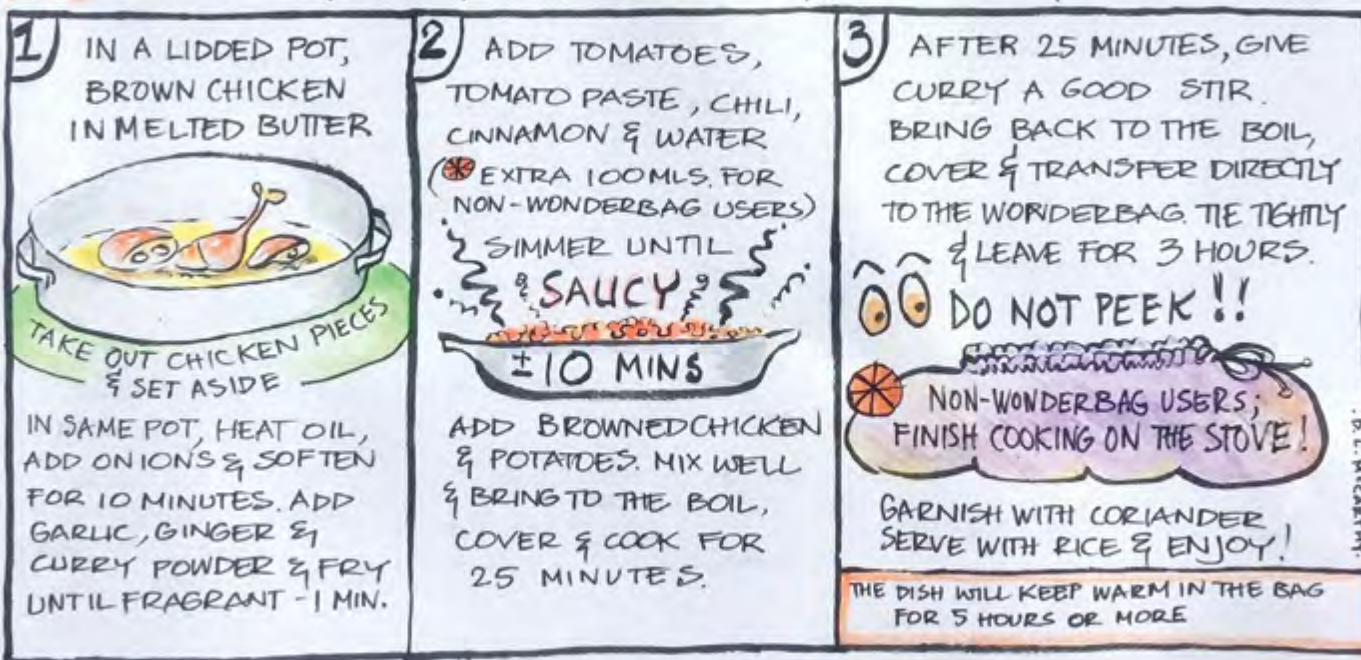 1
IN A LIDDED POT,
BROWN CHICKEN
IN MELTED BUTTER
TAKE OUT CHICKEN PIECES
& SET ASIDE
IN SAME POT, HEAT OIL,
ADD ONIONS & SOFTEN
FOR 10 MINUTES. ADD
GARLIC, GINGER &
CURRY POWDER & FRY
UNTIL FRAGRANT - 1 MIN.
2
ADD TOMATOES,
TOMATO PASTE, CHILI,
CINNAMON & WATER
(EXTRA 100MLS. FOR
NON-WONDERBAG USERS)
SIMMER UNTIL
SAUCY
± 10 MINS
ADD BROWNED CHICKEN
& POTATOES. MIX WELL
& BRING TO THE BOIL,
COVER & COOK FOR
25 MINUTES.
3
AFTER 25 MINUTES, GIVE
CURRY A GOOD STIR.
BRING BACK TO THE BOIL,
COVER & TRANSFER DIRECTLY
TO THE WONDERBAG. TIE TIGHTLY
& LEAVE FOR 3 HOURS.
DO NOT PEEK!!
NON-WONDERBAG USERS;
FINISH COOKING ON THE STOVE!
GARNISH WITH CORIANDER
SERVE WITH RICE & ENJOY!
THE DISH WILL KEEP WARM IN THE BAG
FOR 5 HOURS OR MORE